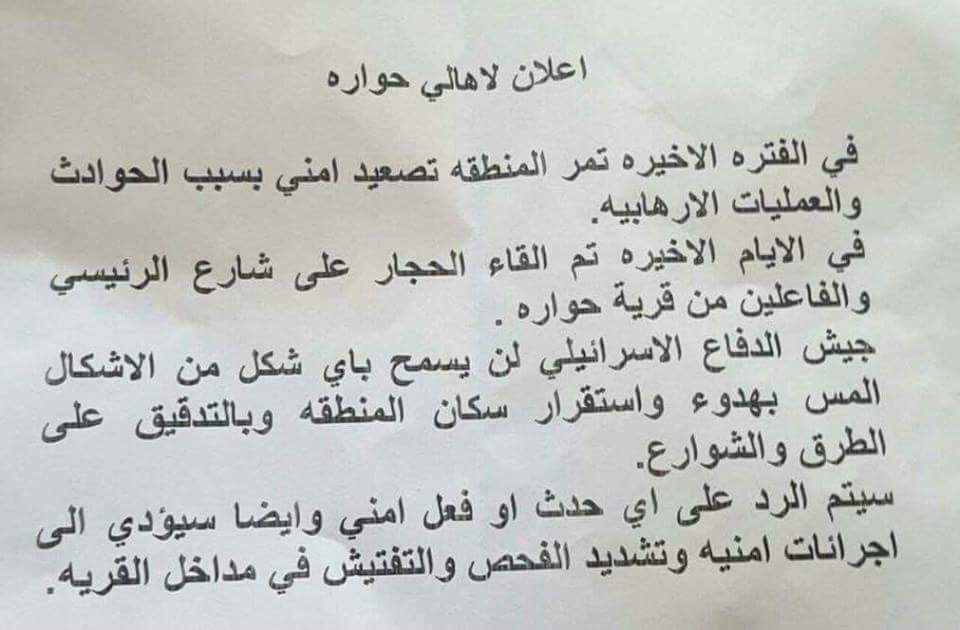 اعلان لاهالي حواره
في الفتره الاخيره تمر المنطقه تصعيد امني بسبب الحوادث
والعمليات الارهابيه.
في الايام الاخيره تم القاء الحجار على شارع الرئيسي
والفاعلين من قرية حواره .
جيش الدفاع الاسرائيلي لن يسمح باي شكل من الاشكال
المس بهدوء واستقرار سكان المنطقه وبالتدقيق على
الطرق والشوارع.
سيتم الرد على اي حدث او فعل امني وايضا سيؤدي الى
اجرائات امنيه وتشديد الفحص والتفتيش في مداخل القريه.